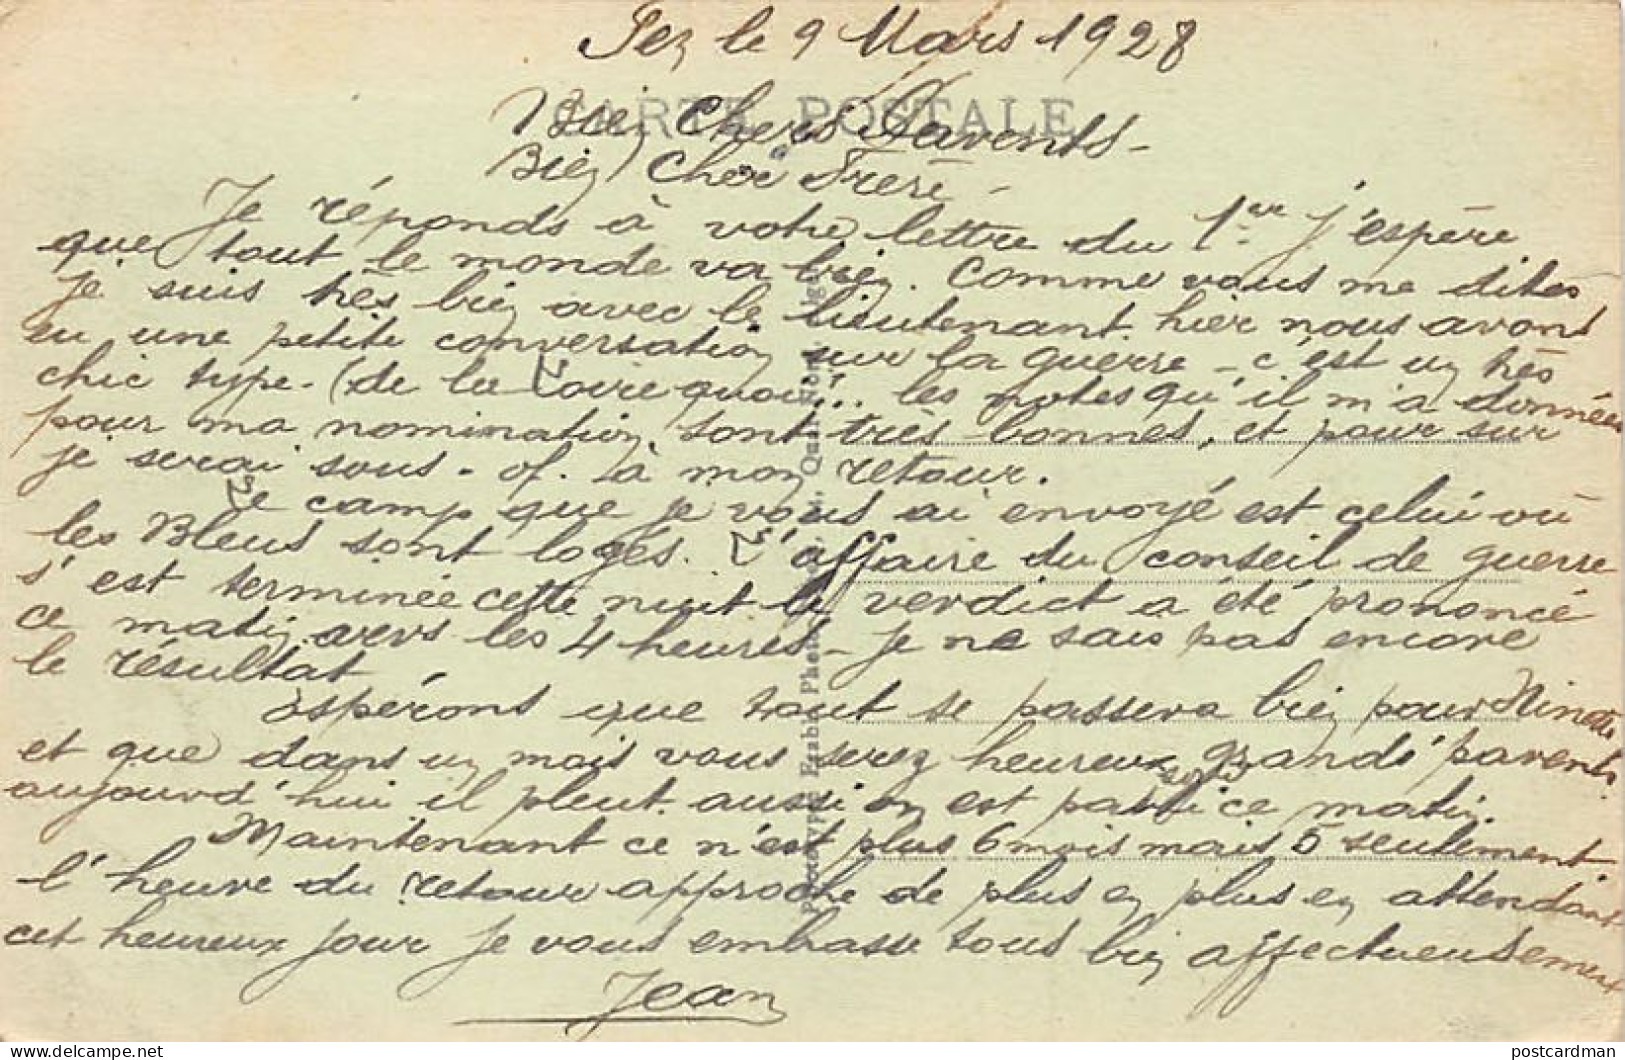 Fez le 9 Mars 1928
CARTE POSTALE
Bien Chers Parents -
Bien Cher Frère -
Je réponds à votre lettre du 1er j'espère
que tout le monde va bien. Comme vous me dites
je suis très bien avec le lieutenant. hier nous avont
eu une petite conversation sur la guerre - c'est un très
chic type. (de la Loire quoi!.. les notes qu'il m'a données
pour ma nomination, sont très bonnes, et pour sur
je serai sous-of. à mon retour.
Le camp que je vous ai envoyé est celui où
les Bleus sont logés. L'affaire du conseil de guerre
s'est terminée cette nuit le verdict a été prononcé
ce matin vers les 4 heures - je ne sais pas encore
le résultat
Espérons que tout se passera bien pour Ninette
et que dans un mois vous serez heureux grands parents
aujourd'hui il pleut. aussi on est parti ce matin.
Maintenant ce n'est plus 6 mois mais 5 seulement.
l'heure du retour approche de plus en plus en attendant
cet heureux jour je vous embrasse tous bien affectueusement
Jean
delcampe.net
postcardman